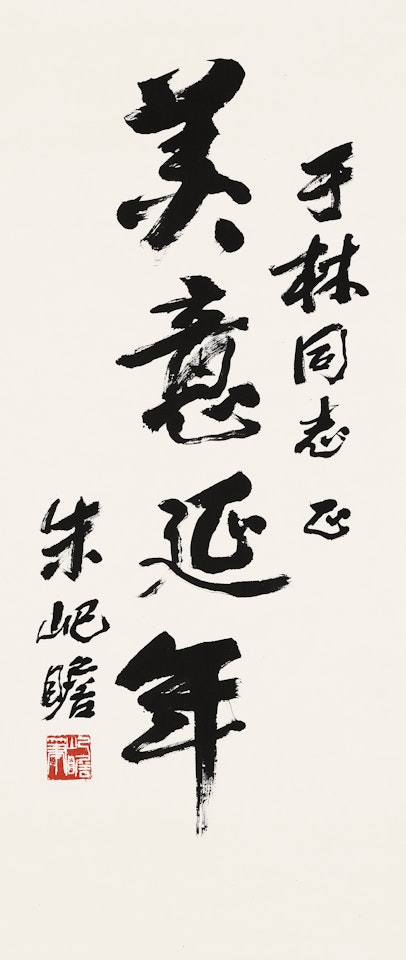 于林同志正
美意延年
朱屺瞻